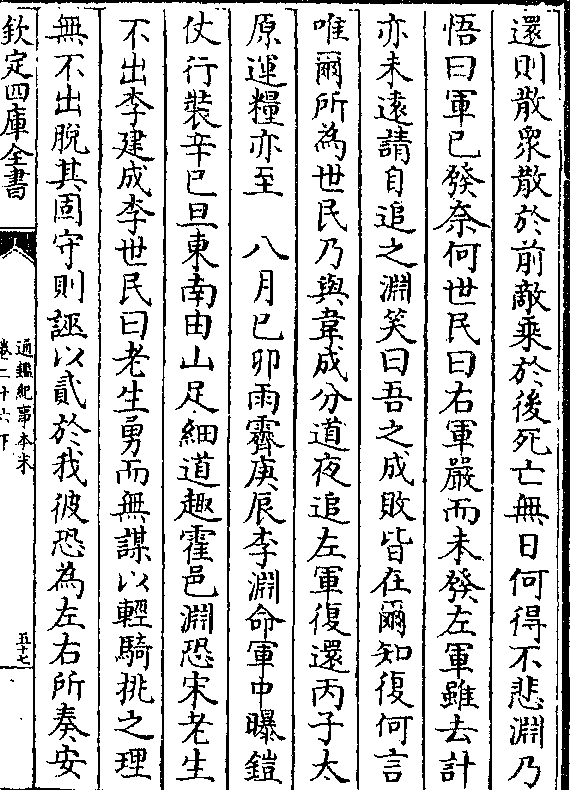 還則散衆散於前敵乘於後死亡無日何得不悲淵乃
悟曰軍已發奈何世民曰右軍嚴而未發左軍雖去計
亦未遠請自追之淵笑曰吾之成敗皆在爾知復何言
唯爾所為世民乃與韋成分道夜追左軍復還丙子太
原運糧亦至　八月已卯雨霽庚辰李淵命軍中曝鎧
仗行裝辛已旦東南由山足細道趣霍邑淵恐宋老生
不出李建成李世民曰老生勇而無謀以輕騎挑之理
無不出脫其固守則誣以貳於我彼恐為左右所奏安
欽定四庫全書
通鑑紀事本末
卷二十六下
五十七